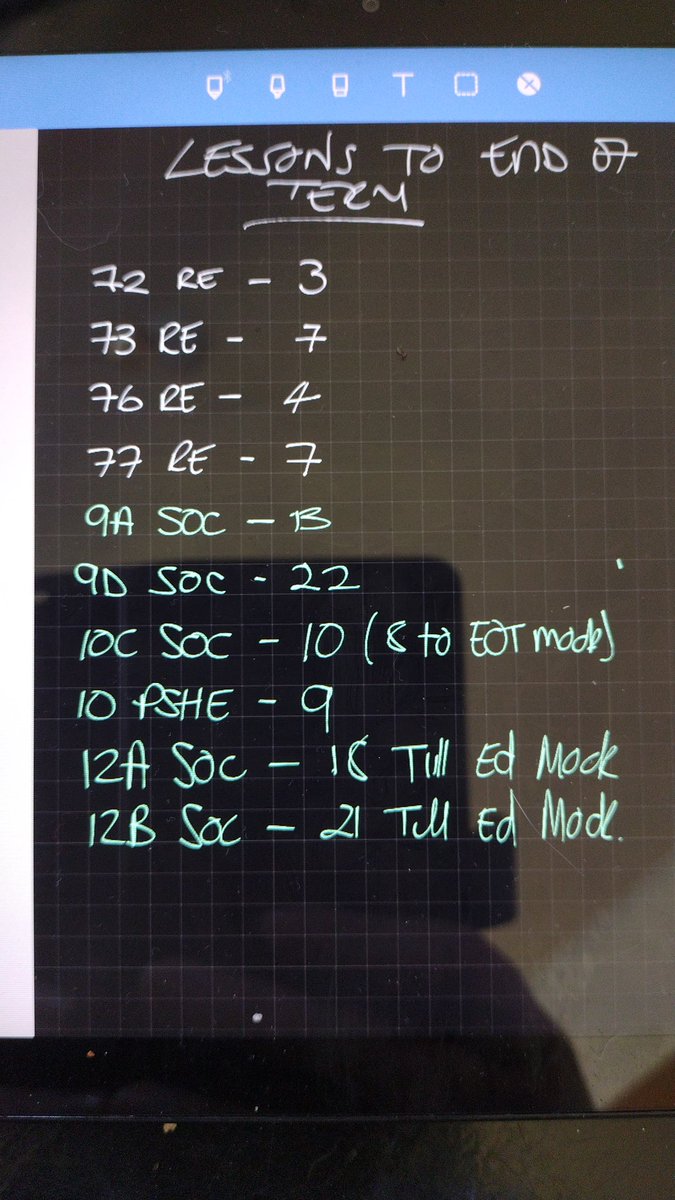 LESSONS TO END OF
TERM
72 RE - 3
73 RE - 7
76 RE - 4
77 RE - 7
9A SOC - 13
9D SOC - 22
10C SOC - 10 (8 to EOT mock)
10 PSHE - 9
12A SOC - 18 Till Ed Mock
12B SOC - 21 Till Ed Mock.